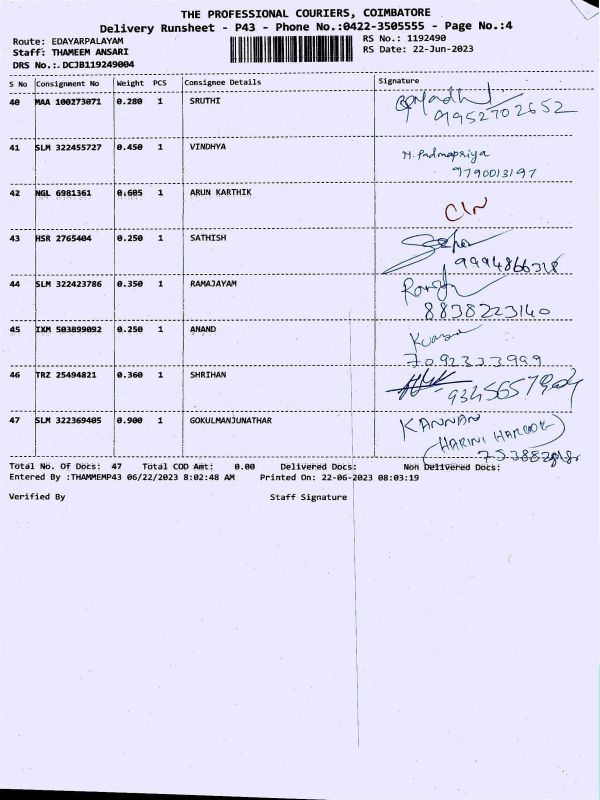 THE PROFESSIONAL COURIERS, COIMBATORE
Delivery Runsheet - P43 - Phone No.:0422-3505555 - Page No.:4
Route: EDAYARPALAYAM RS No.: 1192490
Staff: THAMEEM ANSARI RS Date: 22-Jun-2023
DRS No.:.DCJB119249004
S No Consignment No Weight PCS Consignee Details Signature
40 MAA 100273071 0.280 1 SRUTHI
9952702652
41 SLM 322455727 0.450 1 VINDHYA M. Padmapriya
9790013197
42 NGL 6981361 0.605 1 ARUN KARTHIK
43 HSR 2765404 0.250 1 SATHISH
44 SLM 322423786 0.350 1 RAMAJAYAM
8838223140
45 IXM 503899092 0.250 1 ANAND
7092333999
46 TRZ 25494821 0.360 1 SHRIHAN
47 SLM 322369405 0.900 1 GOKULMANJUNATHAR KANNAN
HARINI
Total No. Of Docs: 47 Total COD Amt: 0.00 Delivered Docs: Non Delivered Docs:
Entered By :THAMMEMP43 06/22/2023 8:02:48 AM Printed On: 22-06-2023 08:03:19
Verified By Staff Signature